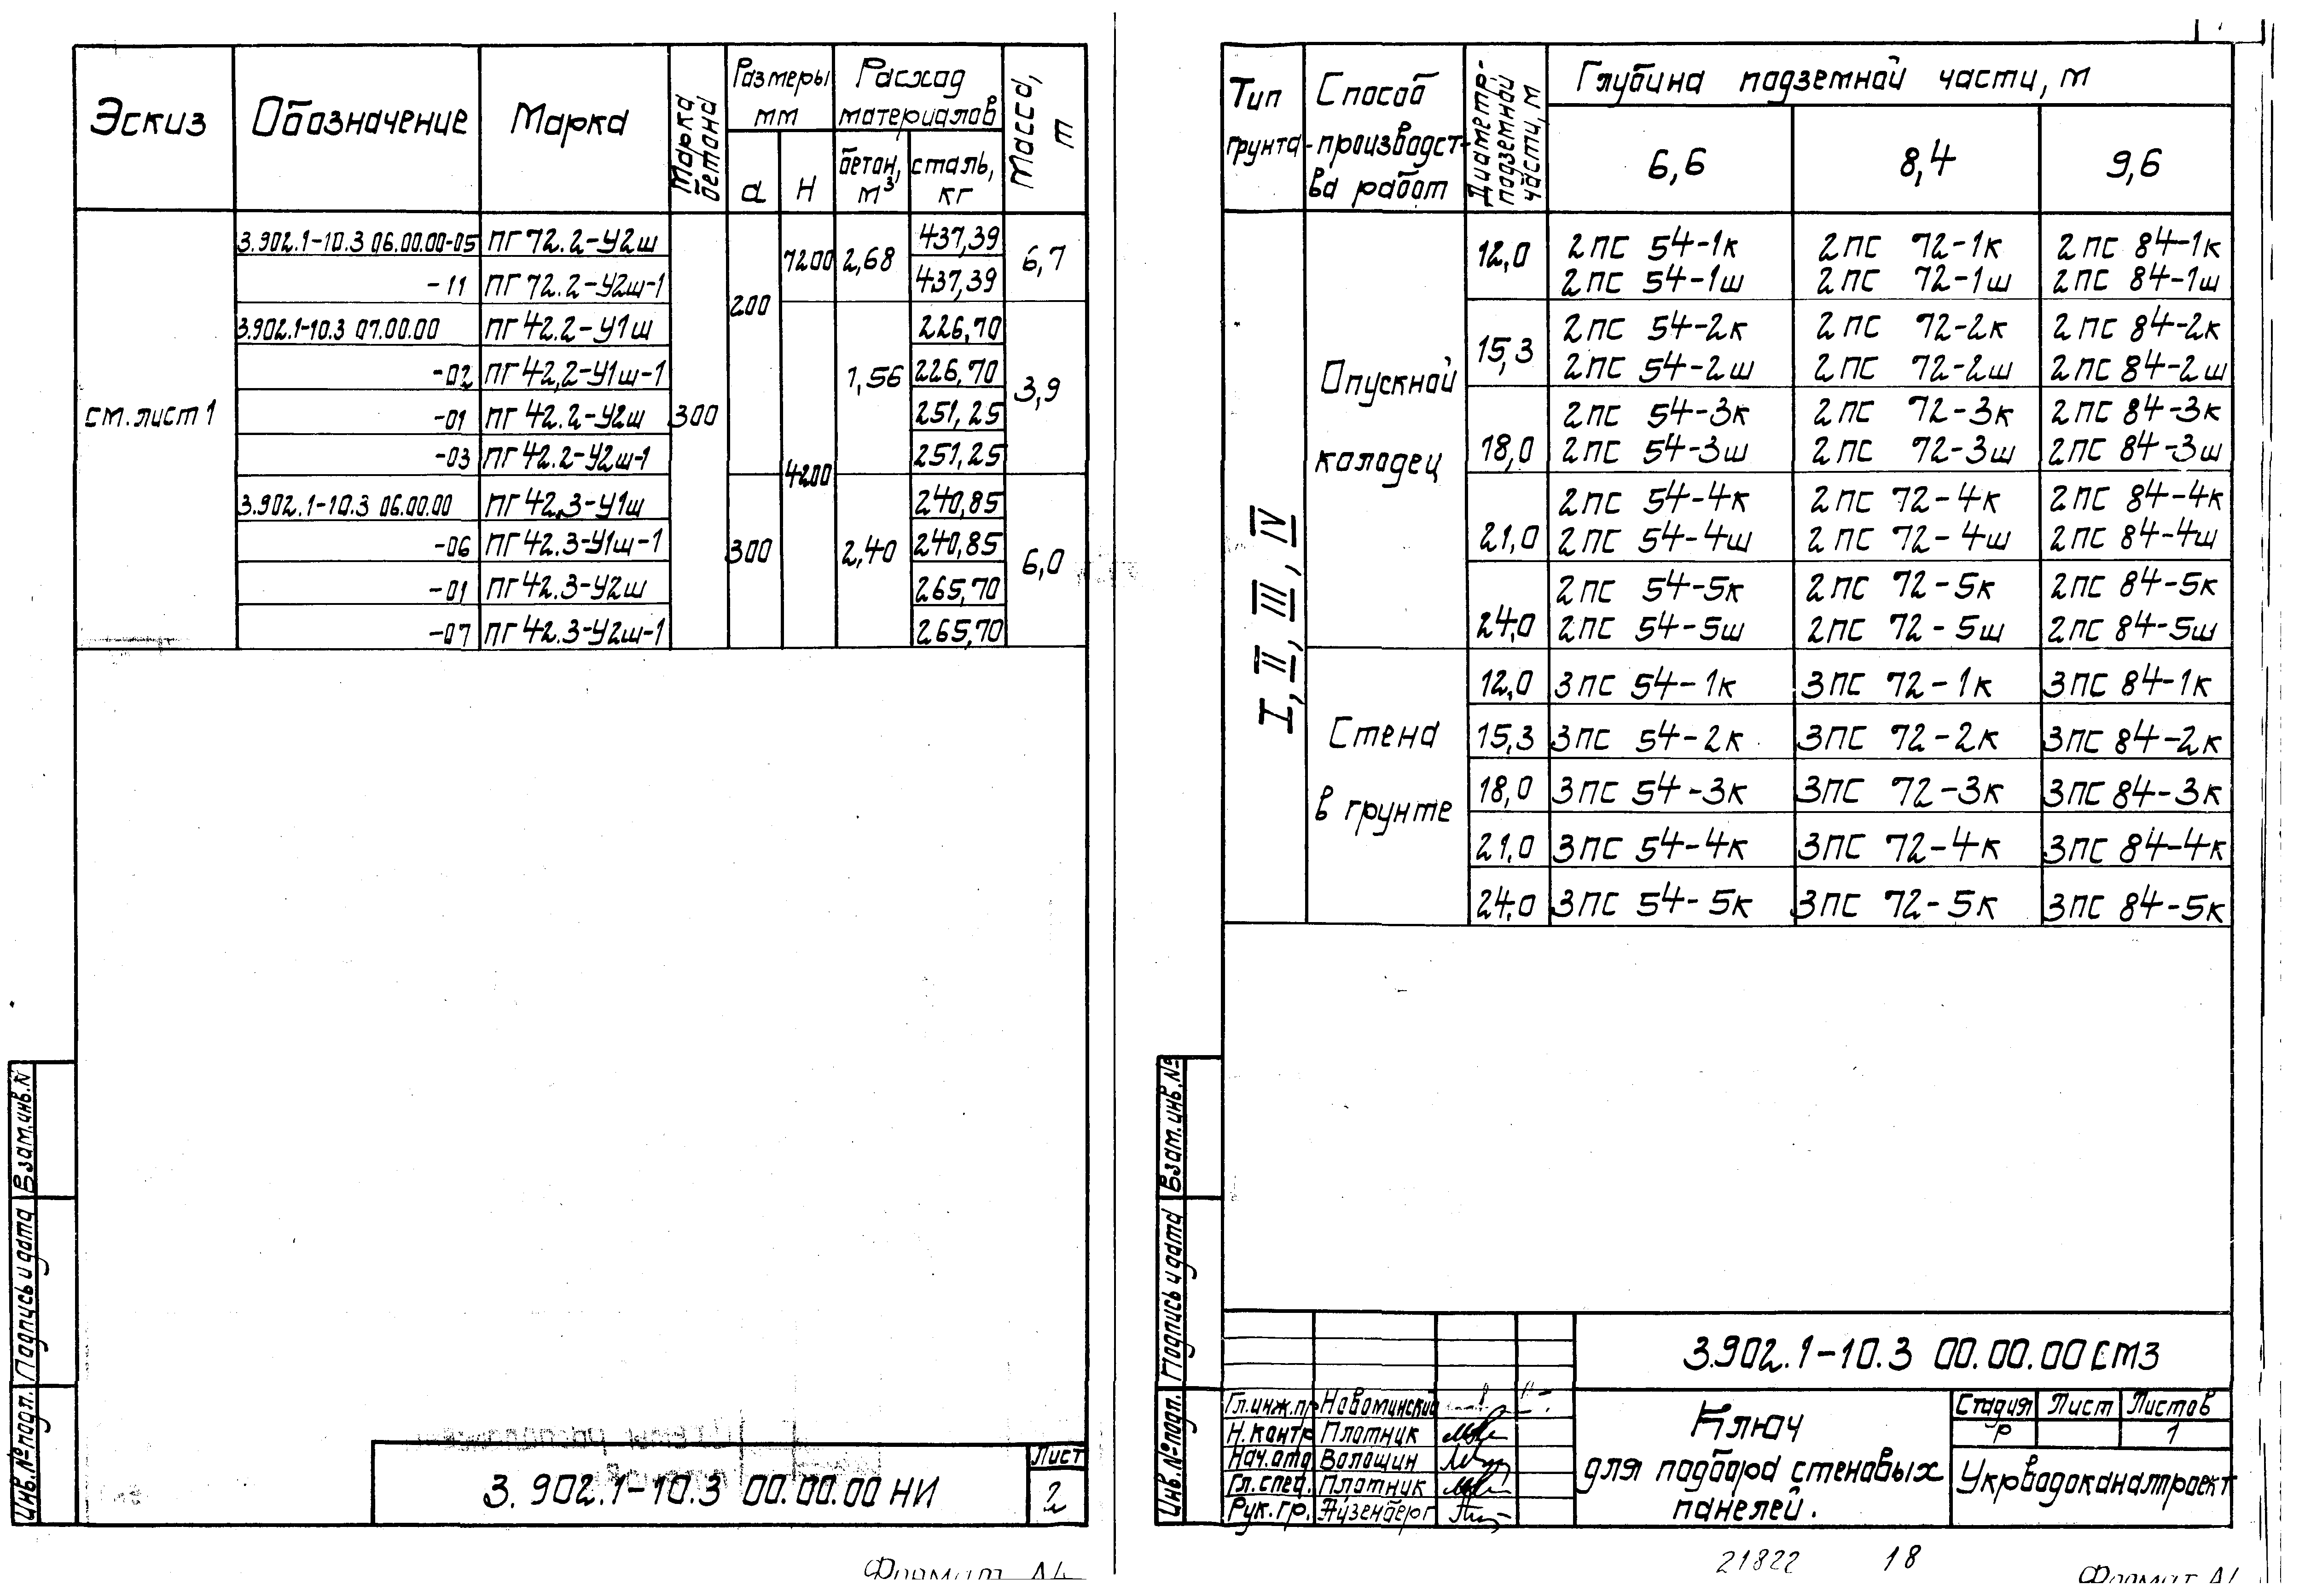 Эскиз Обозначение Марка Марка бетона Размеры мм Расход материалов Масса, т
а Н бетон, м³ сталь, кг
см. лист 1 300
3.902.1-10.3 06.00.00-05 ПГ72.2-У2ш 200 7200 2,68 437,39 6,7
-11 ПГ72.2-У2ш-1 437,39
3.902.1-10.3 07.00.00 ПГ42.2-У1ш 4200 1,56 226,70 3,9
-02 ПГ42,2-У1ш-1 226,70
-01 ПГ42.2-У2ш 251,25
-03 ПГ42.2-У2ш-1 251,25
3.902.1-10.3 06.00.00 ПГ42.3-У1ш 300 2,40 240,85 6,0
-06 ПГ42.3-У1ш-1 240,85
-01 ПГ42.3-У2ш 265,70
-07 ПГ42.3-У2ш-1 265,70
Взам.инв.N
Подпись и дата
Инв.№подл.
3.902.1-10.3 00.00.00 НИ
Лист
2
Формат А4
Тип грунта
Способ производства работ
Диаметр подземной части, м
Глубина подземной части, м
6,6 8,4 9,6
I, II, III, IV
Опускной колодец
12,0 2ПС 54-1к 2ПС 72-1к 2ПС 84-1к
2ПС 54-1ш 2ПС 72-1ш 2ПС 84-1ш
15,3 2ПС 54-2к 2ПС 72-2к 2ПС 84-2к
2ПС 54-2ш 2ПС 72-2ш 2ПС 84-2ш
18,0 2ПС 54-3к 2ПС 72-3к 2ПС 84-3к
2ПС 54-3ш 2ПС 72-3ш 2ПС 84-3ш
21,0 2ПС 54-4к 2ПС 72-4к 2ПС 84-4к
2ПС 54-4ш 2ПС 72-4ш 2ПС 84-4ш
24,0 2ПС 54-5к 2ПС 72-5к 2ПС 84-5к
2ПС 54-5ш 2ПС 72-5ш 2ПС 84-5ш
Стена в грунте
12,0 3ПС 54-1к 3ПС 72-1к 3ПС 84-1к
15,3 3ПС 54-2к 3ПС 72-2к 3ПС 84-2к
18,0 3ПС 54-3к 3ПС 72-3к 3ПС 84-3к
21,0 3ПС 54-4к 3ПС 72-4к 3ПС 84-4к
24,0 3ПС 54-5к 3ПС 72-5к 3ПС 84-5к
Взам.инв.№
Подпись и дата
Инв.№подл.
3.902.1-10.3 00.00.00СМ3
Гл.инж.пр Новоминский
Н.контр Плотник
Нач.отд Волошин
Гл.спец. Плотник
Рук.гр. Айзенберг
Ключ
для подбора стеновых
панелей.
Стадия Лист Листов
Р 1
Укрводоканалпроект
21822 18
Формат А4